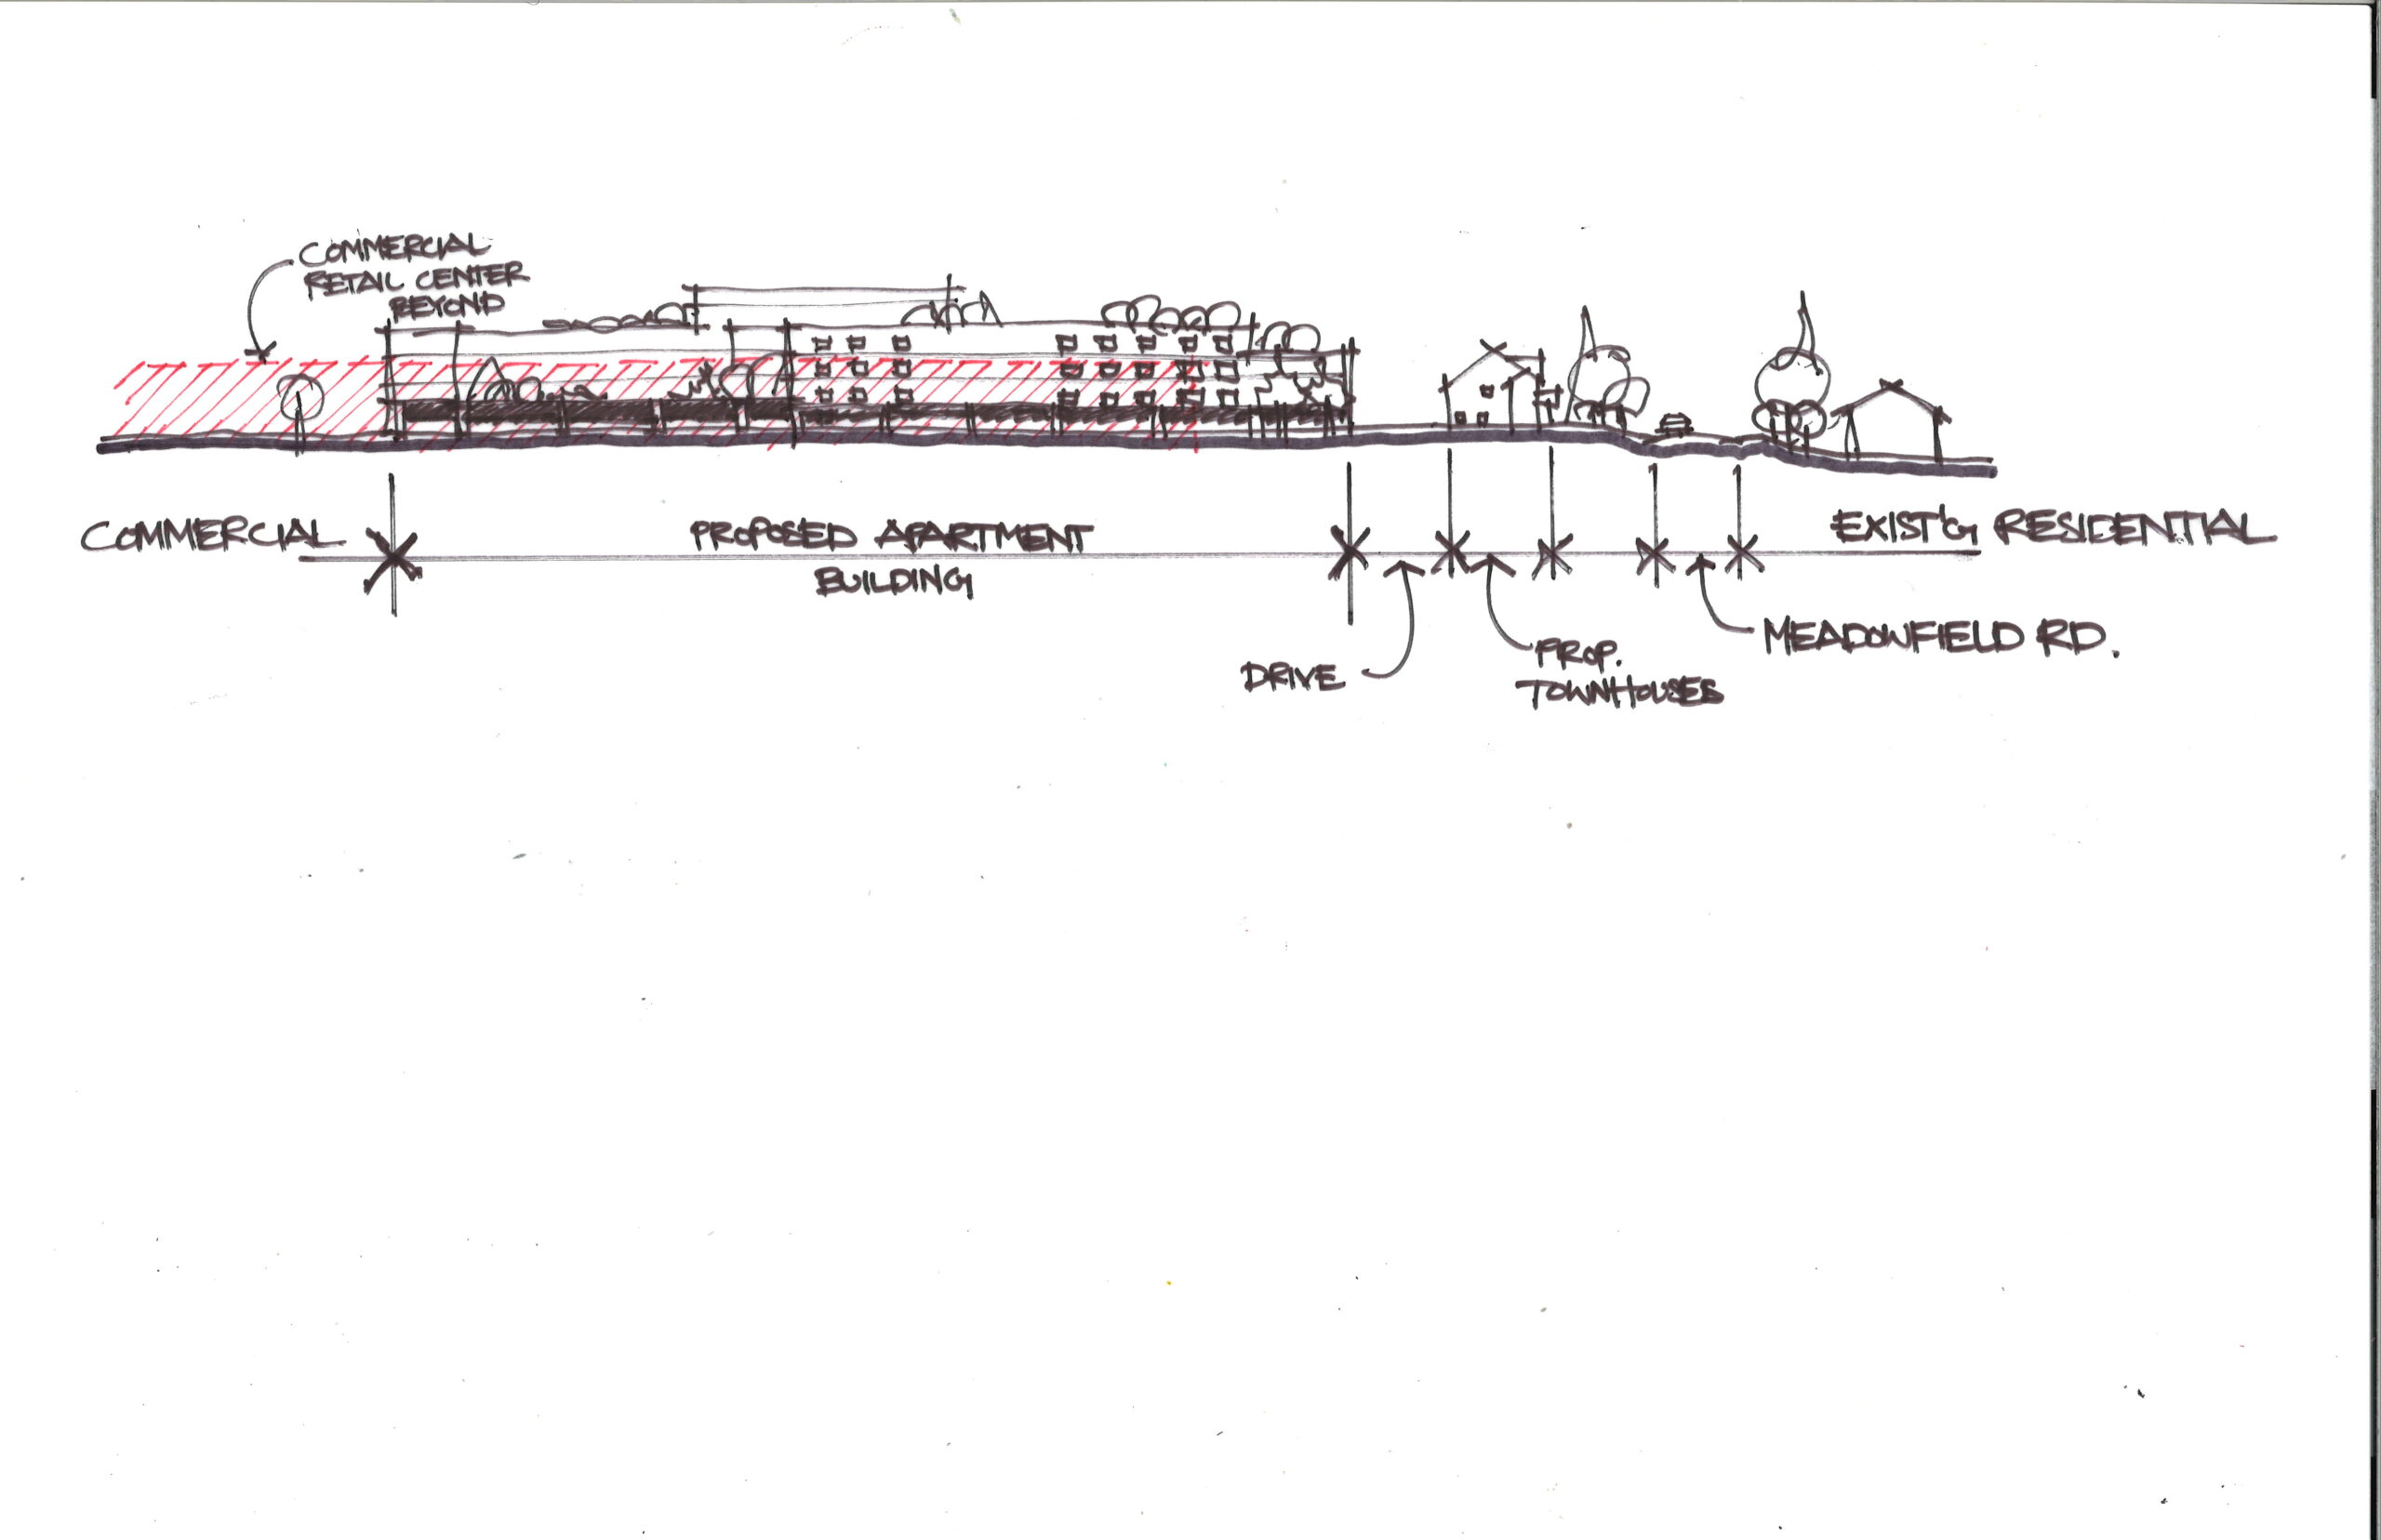 COMMERCIAL
RETAIL CENTER
BEYOND
COMMERCIAL
PROPOSED APARTMENT
BUILDING
EXIST'G RESIDENTIAL
DRIVE
PROP.
TOWNHOUSES
MEADOWFIELD RD.